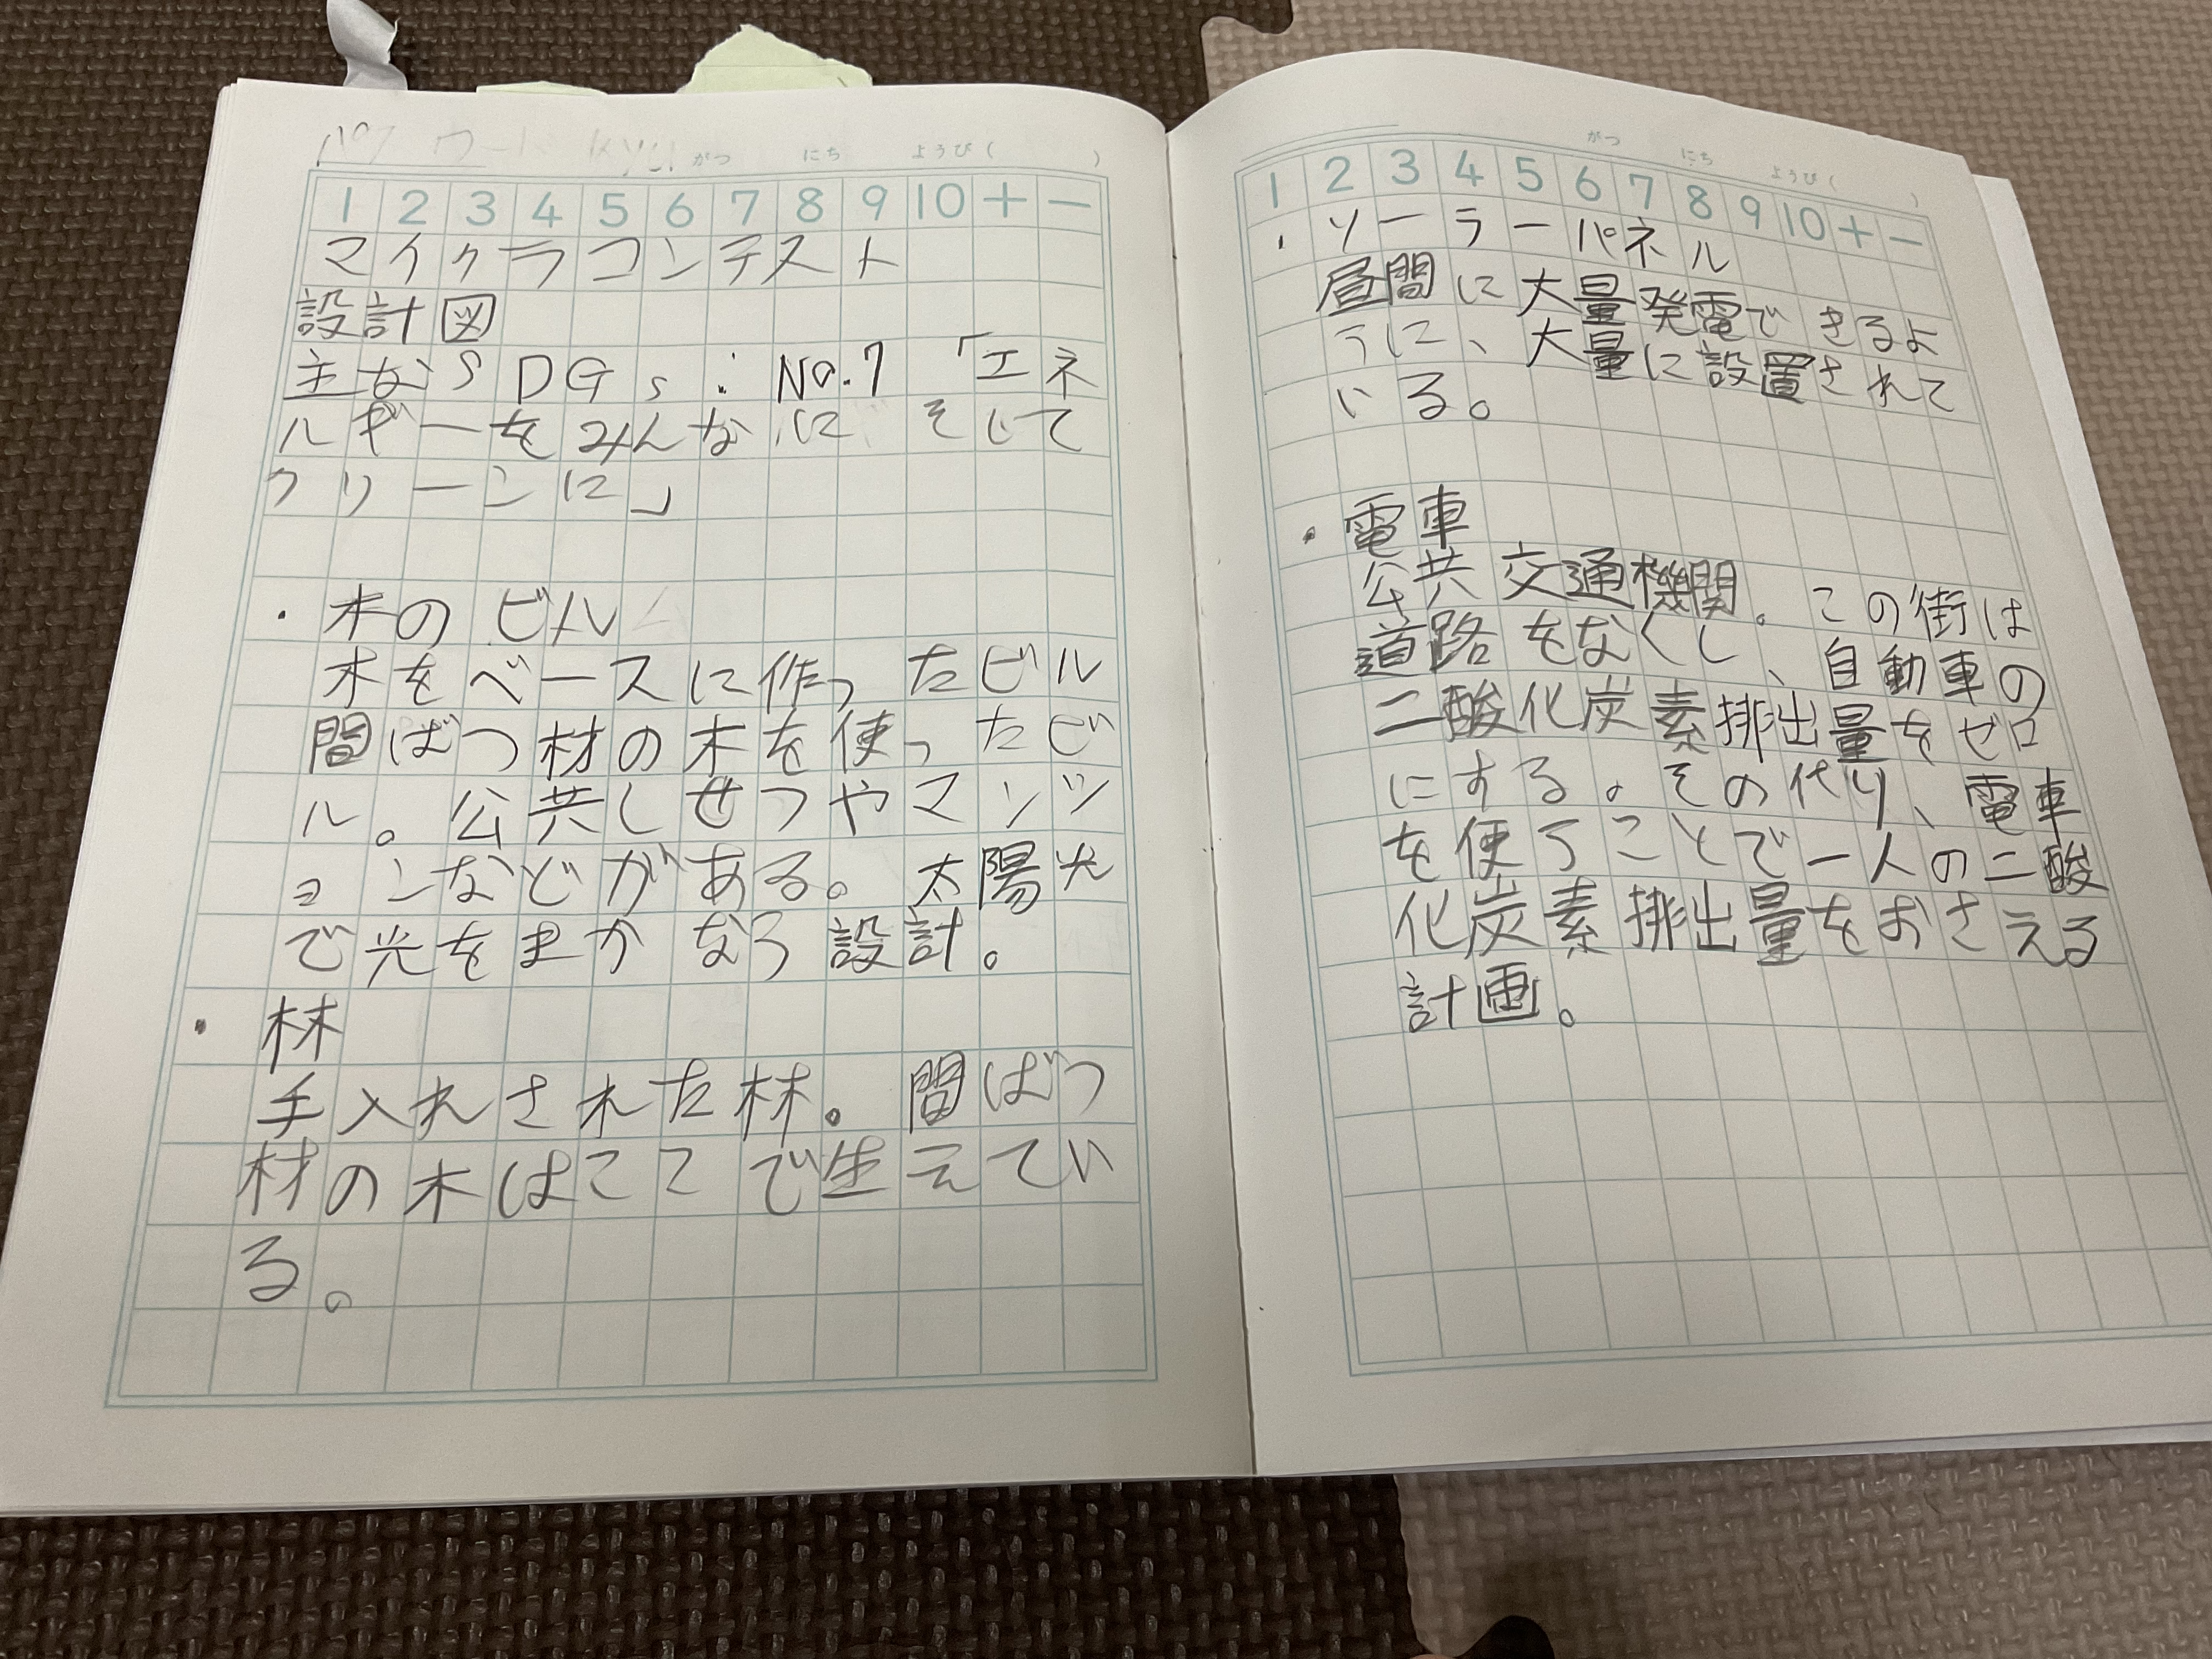 がつ にち ようび( )
1 2 3 4 5 6 7 8 9 10 + −
マイクラコンテスト
設計図
主なSDGs:No.7「エネ
ルギーをみんなに そして
クリーンに」
・木のビル
木をベースに作ったビル
間ばつ材の木を使ったビ
ル。公共しせつやマンシ
ョンなどがある。太陽光
で光をまかなう設計。
・林
手入れされた林。間ばつ
材の木はここで生えてい
る。
がつ にち ようび( )
1 2 3 4 5 6 7 8 9 10 + −
・ソーラーパネル
昼間に大量発電できるよ
うに、大量に設置されて
いる。
・電車
公共交通機関。この街は
道路をなくし、自動車の
二酸化炭素排出量をゼロ
にする。その代り、電車
を使うことで一人の二酸
化炭素排出量をおさえる
計画。